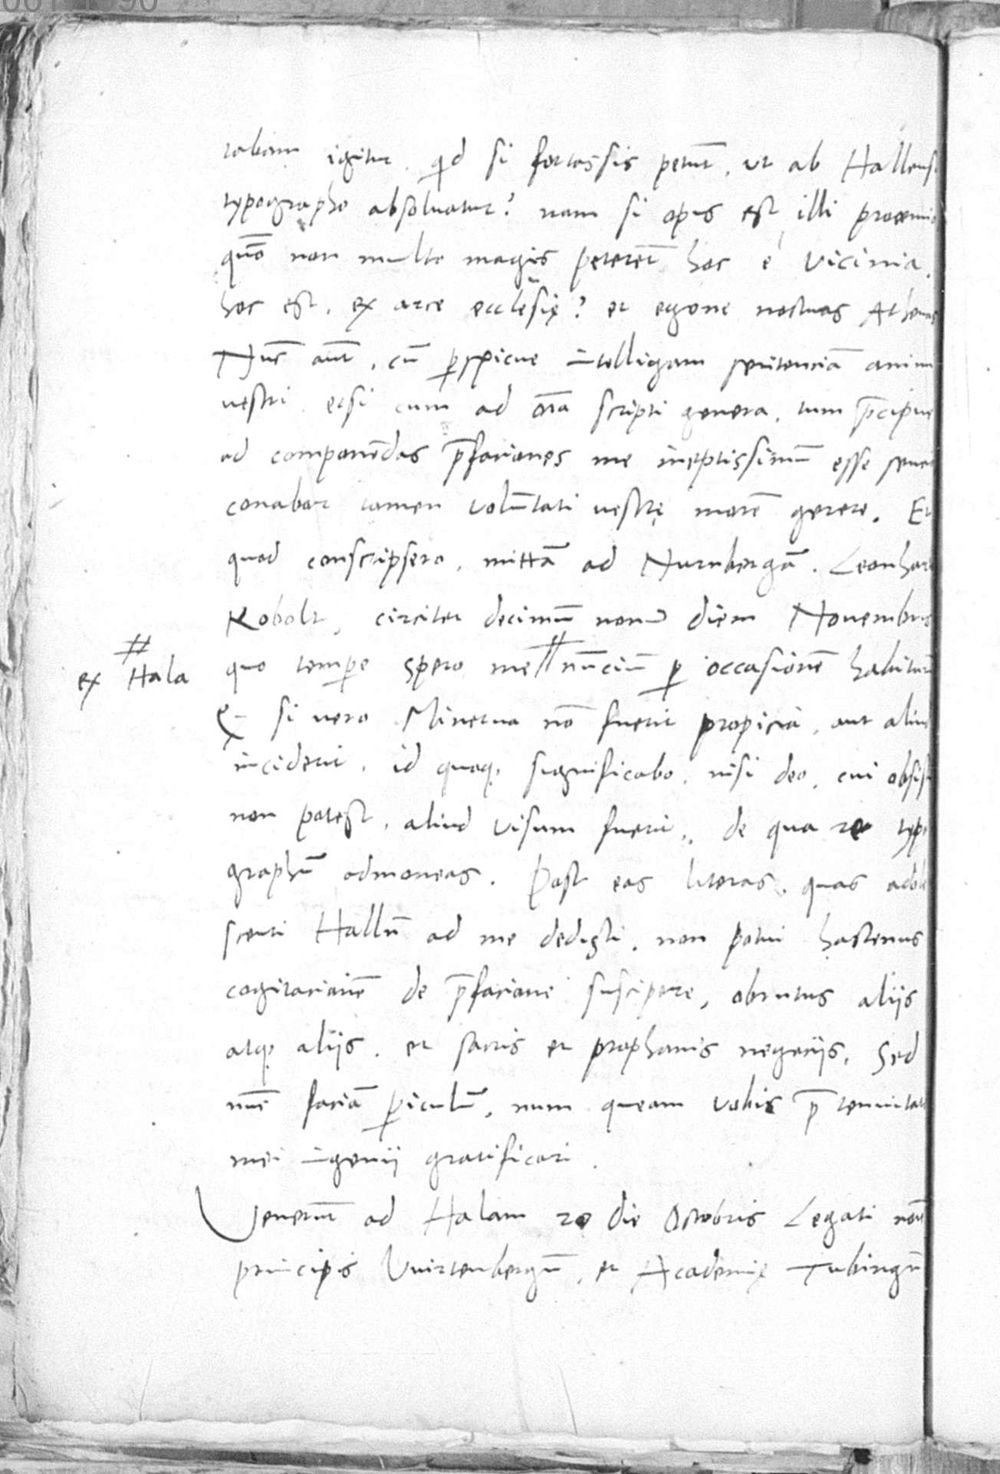 tabam igitur. qͥd si fortassis petunt, ut ab Hallensi
typographo absoluatur? nam si opus est illi proœmio
quō non multo magis petereт̄ hoc è vicinia.
hoc est, ex arce ecclesię? et egone noctuas Athenas
Nūc aūt, cū ꝑspicue intelligam sententiā animi
vestri, etsi cum ad oīa scripti genera, tum p̄cipue
ad componēdas p̄faciones me ineptissimū esse
conabor tamen volūtati vestrę morē gerere. Et
quod conscripsero, mittā ad Nurnbergā. Leonhart
Kobolt, circiter decimū nonū diem Novembris
quo tempe spero me // nūciū ꝑ occasionē habiturū
ex // Hala
Q si vero Minerva nō fuerit propicia, aut aliud
inciderit, id quoqꝫ significabo, nisi deo, cui obsisti
non potest, aliud visum fuerit. de qua re typo
graphū admoneas. Post eas literas, quas adole
scenti Hallēn ad me dedisti, non potui hactenus
cogitacionē de p̄facione suscipere, obrutus aliis
atqꝫ aliis, et sacris et prophanis negociis. Sed
nūc faciā ꝑiculū, num queam vobis p̄ tenuitate
mei ingenii gratificari.
Venerūt ad Halam 20 die Octobris Legati
principis Wirtenbergēn, et Academię Tubingēn